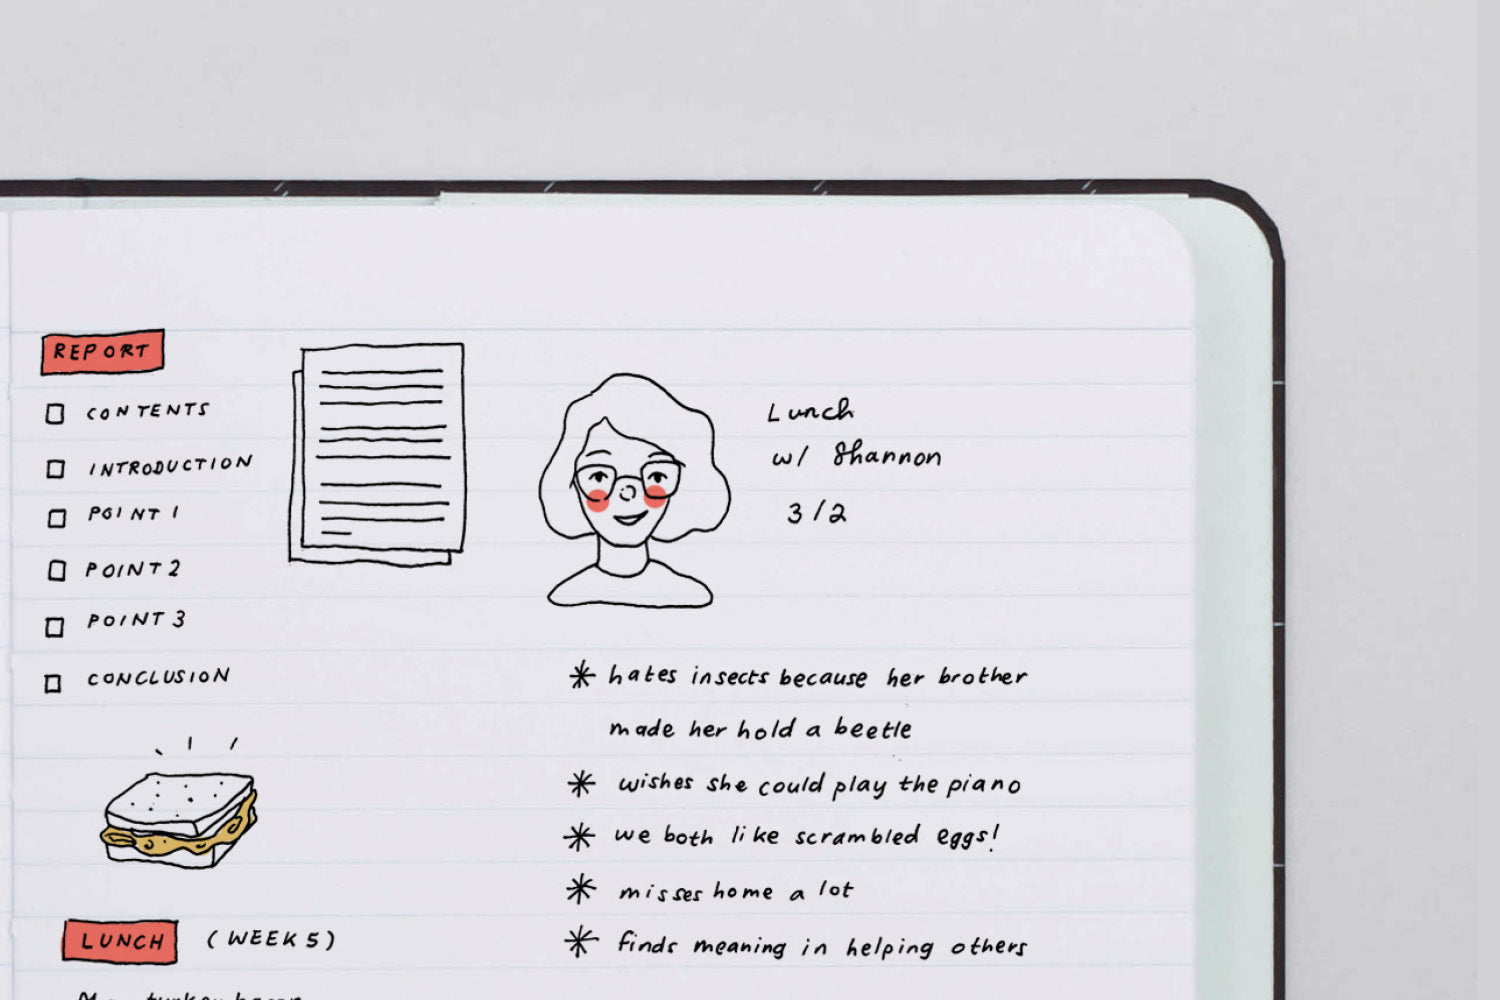 REPORT
CONTENTS
INTRODUCTION
POINT 1
POINT 2
POINT 3
CONCLUSION
Lunch
w/ Shannon
3/2
hates insects because her brother
made her hold a beetle
wishes she could play the piano
we both like scrambled eggs!
misses home a lot
finds meaning in helping others
LUNCH (WEEK 5)
turkey bacon